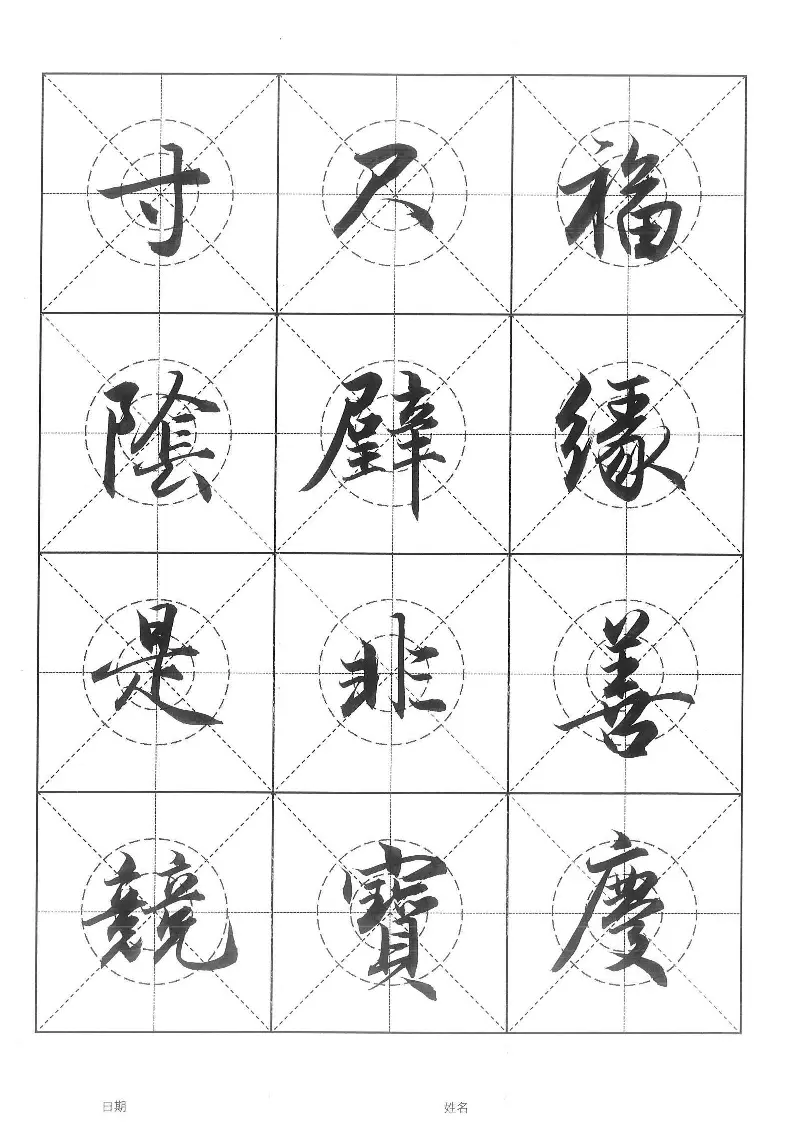 福緣善慶
尺璧非寶
寸陰是競
日期
姓名